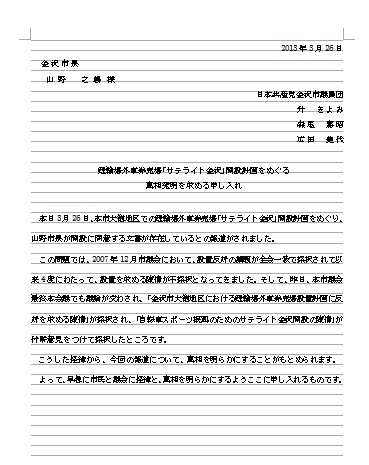 2013年3月26日
金沢市長
山野 之義 様
日本共産党金沢市議員団
升 きよみ
森尾 嘉昭
広田 美代
競輪場外車券売場「サテライト金沢」開設計画をめぐる
真相究明を求める申し入れ
本日3月26日、本市大徳地区での競輪場外車券売場「サテライト金沢」開設計画をめぐり、
山野市長が開設に同意する文書が存在しているとの報道がされました。
この問題では、2007年12月市議会において、設置反対の請願が全会一致で採択されて以
来4度にわたって、設置を求める陳情が不採択となってきました。そして、昨日、本市議会
最終本会議でも議論が交わされ、「金沢市大徳地区における競輪場外車券売場設置計画に反
対を求める陳情」が採択され、「自転車スポーツ振興のためのサテライト金沢開設の陳情」が
付帯意見をつけて採択したところです。
こうした経緯から、今回の報道について、真相を明らかにすることがもとめられます。
よって、早急に市民と議会に経緯と、真相を明らかにするようここに申し入れるものです。